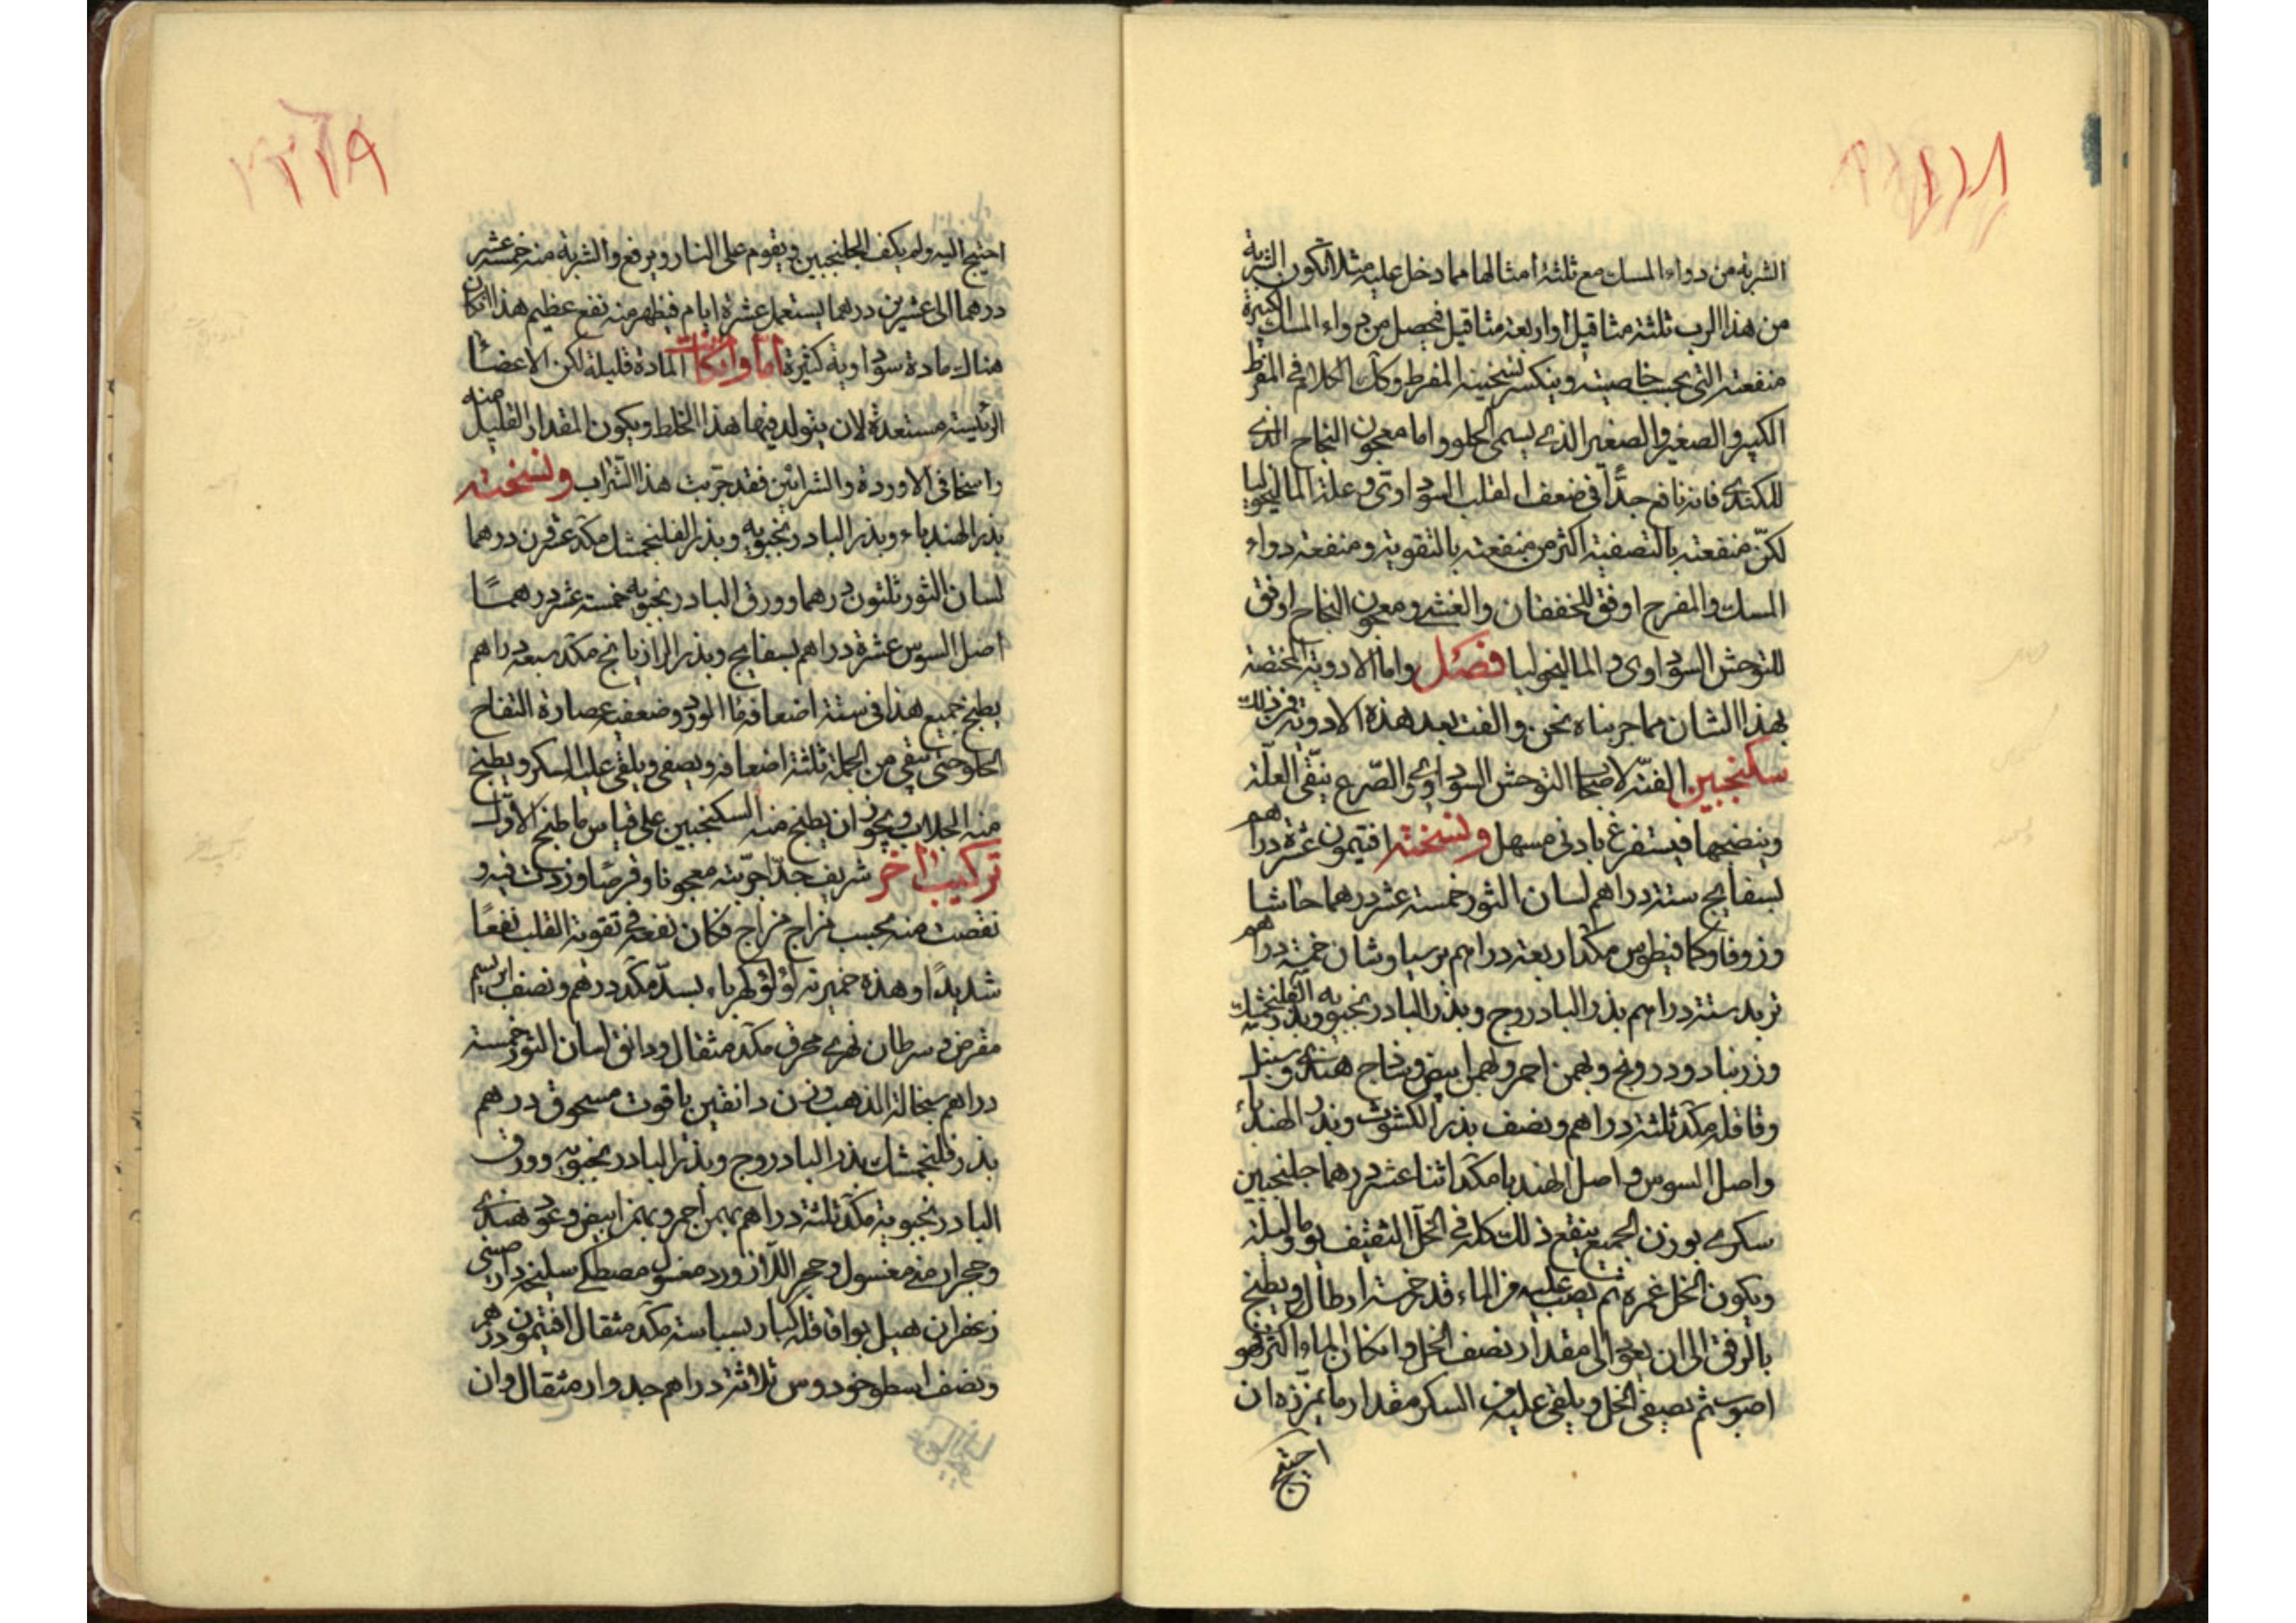 الشربة من دواء المسك مع ثلثة امثالها مما دخل عليه مثلا لتكون الشربة
من هذا الرب ثلثة مثاقيل او اربعة مثاقيل فيحصل من دواء المسك الكبيرة
منفعته التى بحسب خاصيته وينكسر تسخينه المفرط وكك الكلام فى المفرط
الكبير والصغير الذى يسمى الحلو واما معجون النجاح الذى
للكندى فانه نافع جدًّا فى ضعف القلب السوداوى و علة الماليخوليا
لكنّ منفعته بالتصفية اكثر من منفعته بالتقوية ومنفعة دواء
المسك والمفرح اوفق للخفقان والغشى ومعجون النجاح اوفق
للتوحش السوداوى و الماليخوليا فصل واما الادوية المختصة
بهذا الشان مما جربناه نحن والفت بعد هذه الادوية فمن ذلك
سكنجبين الفته لاصحاب التوحش السوداوى والصرع ينقى العلة
وينضجها فيستفرغ بادنى مسهل ونسخته افتيمون عشرة دراهم
بسفايج ستة دراهم لسان الثور خمسة عشر درهما حاشا
وزوفا وكمافيطوس مكد اربعة دراهم برسياوشان خمسة دراهم
تربد ستة دراهم بذر البادروج وبذر البادرنجبويه وبذر الفلنجمشك
وزرنباد ودرونج وبهمن احمر وبهمن ابيض وساذج هندى وسنبل
وقاقله مكد ثلثة دراهم ونصف بذر الكشوث وبذر الهندباء
واصل السوس و اصل الهندبا مكد اثنا عشر درهما جلنجبين
سكرى بوزن الجميع ينقع ذلك كله فى الخل الثقيف يوما وليلة
ويكون الخل غمره ثم يصب عليه من الماء قدر خمسة ارطال ويطبخ
بالرفق الى ان يعود الى مقدار نصف الخل وانكان الماء اكثر فهو
اصوب ثم يصفى الخل ويلقى عليه من السكر مقدار ما يمززه ان
احتيج
احتيج اليه ولم يكف الجلنجبين ويقوم على النار ويرفع والشربة منه خمسة عشر
درهما الى عشرين درهما يستعمل عشرة ايام فيظهر منه نفع عظيم هذا انكان
هناك مادة سوداوية كثيرة اما وانكانت المادة قليلة لكن الاعضا
الرئيسة مستعدة لان يتولد فيها هذا الخلط ويكون المقدار القليل منه
راسخا فى الاوردة والشرائين فقد جربت هذا الشراب ونسخته
بذر الهندباء وبذر البادرنجبويه وبذر الفلنجمشك مكد عشرون درهما
لسان الثور ثلثون درهما وورق البادرنجبويه خمسة عشر درهمًا
اصل السوس عشرة دراهم بسفايج وبذر الرازيانج مكد سبعة دراهم
يطبخ جميع هذا فى ستة اضعافه ما الورد وضعفيه عصارة التفاح
الحلو حتى يبقى من الجملة ثلثة اضعافه ويصفى ويلقى عليه السكر ويطبخ
منه الجلاب ويجوز ان يطبخ منه السكنجبين على قياس ما طبخ الاول
تركيب اخر شريف جدّا جرّبته معجونا وقرصًا وزدت فيه و
نقصت منه بحسب مزاج مزاج فكان نفعه فى تقوية القلب نفعًا
شديدًا وهذه خميرته لؤلؤ كهرباء بسد مكد درهم ونصف ابريسم
مقرض و سرطان نهرى محرق مكد مثقال ودانق لسان الثور خمسة
دراهم سحالة الذهب وزن دانقين ياقوت مسحوق درهم
بذر فلنجمشك بذر البادروج وبذر البادرنجبويه وورق
البادرنجبوية مكد ثلثة دراهم بهمن احمر وبهمن ابيض وعود هندى
وحجر ارمنى مغسول وحجر اللازورد مغسول مصطكى سليخه دارصينى
زعفران هيل بوا قاقله كبار بسباسة مكد مثقال افتيمون درهم
ونصف اسطوخودوس ثلاثة دراهم جدوار مثقال وان